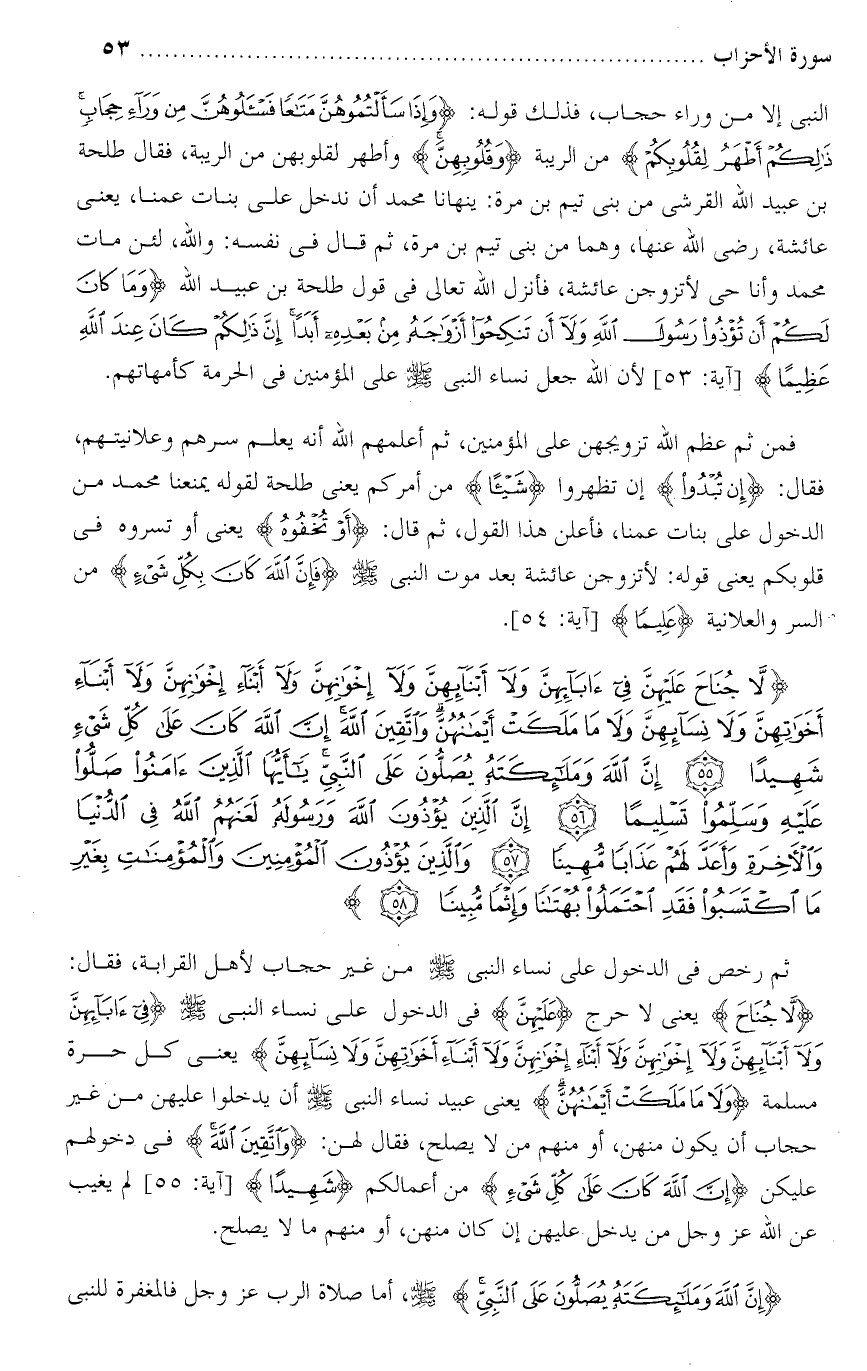 سورة الأحزاب ........................................................................ ٥٣
النبى إلا مـن وراء حجـاب، فذلـك قولـه: ﴿وَإِذَا سَأَلْتُمُوهُنَّ مَتَٰعًا فَسْـَٔلُوهُنَّ مِن وَرَآءِ حِجَابٍۚ
ذَٰلِكُمْ أَطْهَرُ لِقُلُوبِكُمْ﴾ من الريبة ﴿وَقُلُوبِهِنَّۚ﴾ وأطهر لقلوبهن من الريبة، فقال طلحة
بن عبيد الله القرشى من بنى تيم بن مرة: ينهانا محمد أن ندخل علـى بنـات عمنـا، يعنـى
عائشة، رضى الله عنها، وهما من بنى تيم بن مرة، ثم قـال فـى نفسـه: والله، لئـن مـات
محمد وأنا حى لأتزوجن عائشة، فأنزل الله تعالى فى قول طلحة بن عبيـد الله ﴿وَمَا كَانَ
لَكُمْ أَن تُؤْذُوا۟ رَسُولَ ٱللَّهِ وَلَآ أَن تَنكِحُوٓا۟ أَزْوَٰجَهُۥ مِنۢ بَعْدِهِۦٓ أَبَدًاۚ إِنَّ ذَٰلِكُمْ كَانَ عِندَ ٱللَّهِ
عَظِيمًا﴾ [آية: ٥٣] لأن الله جعل نساء النبى ﷺ على المؤمنين فى الحرمة كأمهاتهم.
فمن ثم عظم الله تزويجهن على المؤمنين، ثم أعلمهم الله أنه يعلـم سـرهم وعلانيتـهم،
فقال: ﴿إِن تُبْدُوا۟﴾ إن تظهروا ﴿شَيْـًٔا﴾ من أمركم يعنى طلحة لقوله يمنعنا محمـد مـن
الدخول على بنات عمنا، فأعلن هذا القول، ثم قال: ﴿أَوْ تُخْفُوهُ﴾ يعنى أو تسروه فـى
قلوبكم يعنى قوله: لأتزوجن عائشة بعد موت النبى ﷺ ﴿فَإِنَّ ٱللَّهَ كَانَ بِكُلِّ شَىْءٍ﴾ من
السر والعلانية ﴿عَلِيمًا﴾ [آية: ٥٤].
﴿لَّا جُنَاحَ عَلَيْهِنَّ فِىٓ ءَابَآئِهِنَّ وَلَآ أَبْنَآئِهِنَّ وَلَآ إِخْوَٰنِهِنَّ وَلَآ أَبْنَآءِ إِخْوَٰنِهِنَّ وَلَآ أَبْنَآءِ
أَخَوَٰتِهِنَّ وَلَا نِسَآئِهِنَّ وَلَا مَا مَلَكَتْ أَيْمَٰنُهُنَّۗ وَٱتَّقِينَ ٱللَّهَۚ إِنَّ ٱللَّهَ كَانَ عَلَىٰ كُلِّ شَىْءٍ
شَهِيدًا ٥٥ إِنَّ ٱللَّهَ وَمَلَٰٓئِكَتَهُۥ يُصَلُّونَ عَلَى ٱلنَّبِىِّۚ يَٰٓأَيُّهَا ٱلَّذِينَ ءَامَنُوا۟ صَلُّوا۟
عَلَيْهِ وَسَلِّمُوا۟ تَسْلِيمًا ٥٦ إِنَّ ٱلَّذِينَ يُؤْذُونَ ٱللَّهَ وَرَسُولَهُۥ لَعَنَهُمُ ٱللَّهُ فِى ٱلدُّنْيَا
وَٱلْءَاخِرَةِ وَأَعَدَّ لَهُمْ عَذَابًا مُّهِينًا ٥٧ وَٱلَّذِينَ يُؤْذُونَ ٱلْمُؤْمِنِينَ وَٱلْمُؤْمِنَٰتِ بِغَيْرِ
مَا ٱكْتَسَبُوا۟ فَقَدِ ٱحْتَمَلُوا۟ بُهْتَٰنًا وَإِثْمًا مُّبِينًا ٥٨﴾
ثم رخص فى الدخول على نساء النبى ﷺ مـن غـير حجـاب لأهـل القرابـة، فقـال:
﴿لَّا جُنَاحَ﴾ يعنى لا حرج ﴿عَلَيْهِنَّ﴾ فى الدخول علـى نسـاء النبـى ﷺ ﴿فِىٓ ءَابَآئِهِنَّ
وَلَآ أَبْنَآئِهِنَّ وَلَآ إِخْوَٰنِهِنَّ وَلَآ أَبْنَآءِ إِخْوَٰنِهِنَّ وَلَآ أَبْنَآءِ أَخَوَٰتِهِنَّ وَلَا نِسَآئِهِنَّ﴾ يعنـى كـل حـرة
مسلمة ﴿وَلَا مَا مَلَكَتْ أَيْمَٰنُهُنَّۗ﴾ يعنى عبيد نساء النبى ﷺ أن يدخلوا عليهن مـن غـير
حجاب أن يكون منهن، أو منهم من لا يصلح، فقال لهـن: ﴿وَٱتَّقِينَ ٱللَّهَۚ﴾ فـى دخولهـم
عليكن ﴿إِنَّ ٱللَّهَ كَانَ عَلَىٰ كُلِّ شَىْءٍ﴾ من أعمالكم ﴿شَهِيدًا﴾ [آية: ٥٥] لم يغيب
عن الله عز وجل من يدخل عليهن إن كان منهن، أو منهم ما لا يصلح.
﴿إِنَّ ٱللَّهَ وَمَلَٰٓئِكَتَهُۥ يُصَلُّونَ عَلَى ٱلنَّبِىِّۚ﴾ ﷺ، أما صلاة الرب عز وجل فالمغفرة للنبى